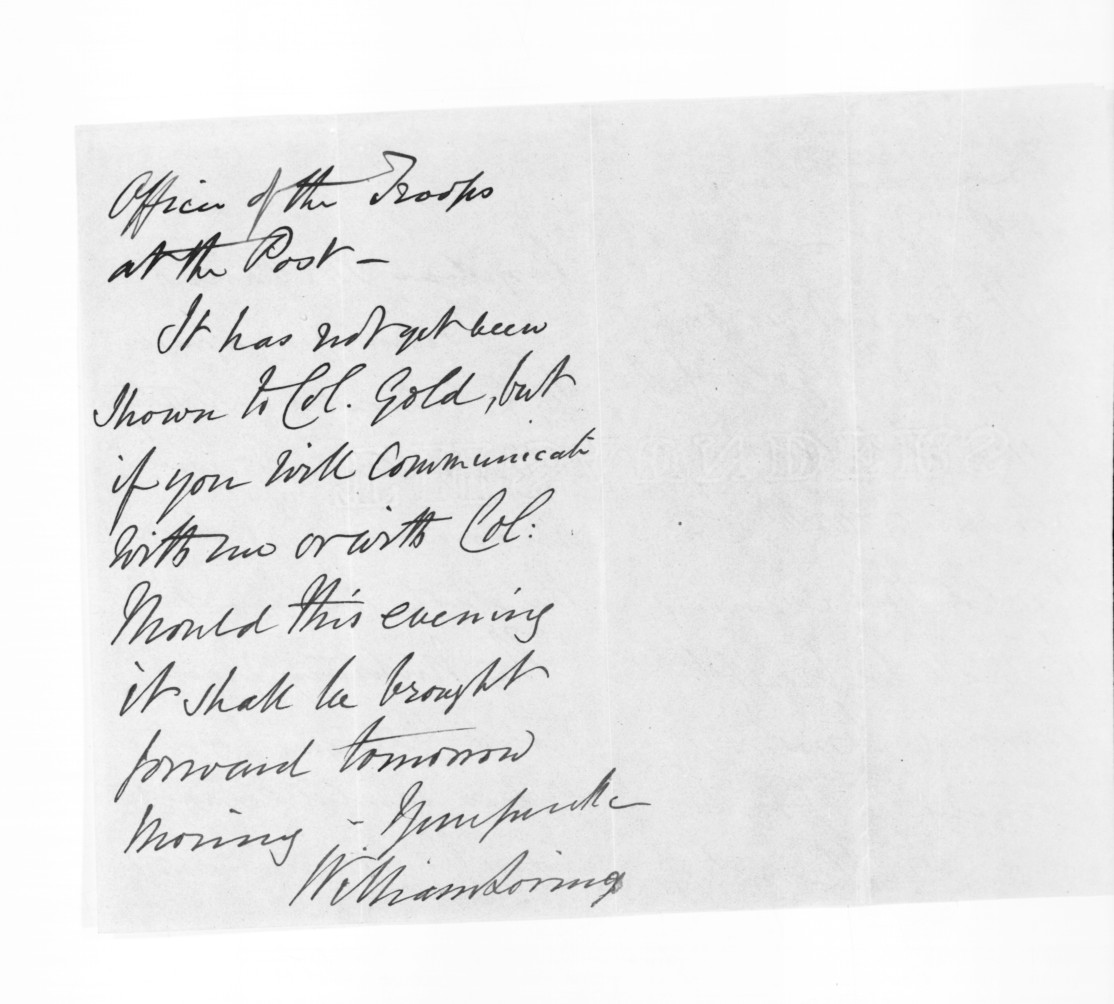 Officer of the Troops
at the Post –
It has not yet been
shown to Col. Gold, but
if you will communicate
with me or with Col:
Mould this evening
it shall be brought
forward tomorrow
Morning –
William Loring